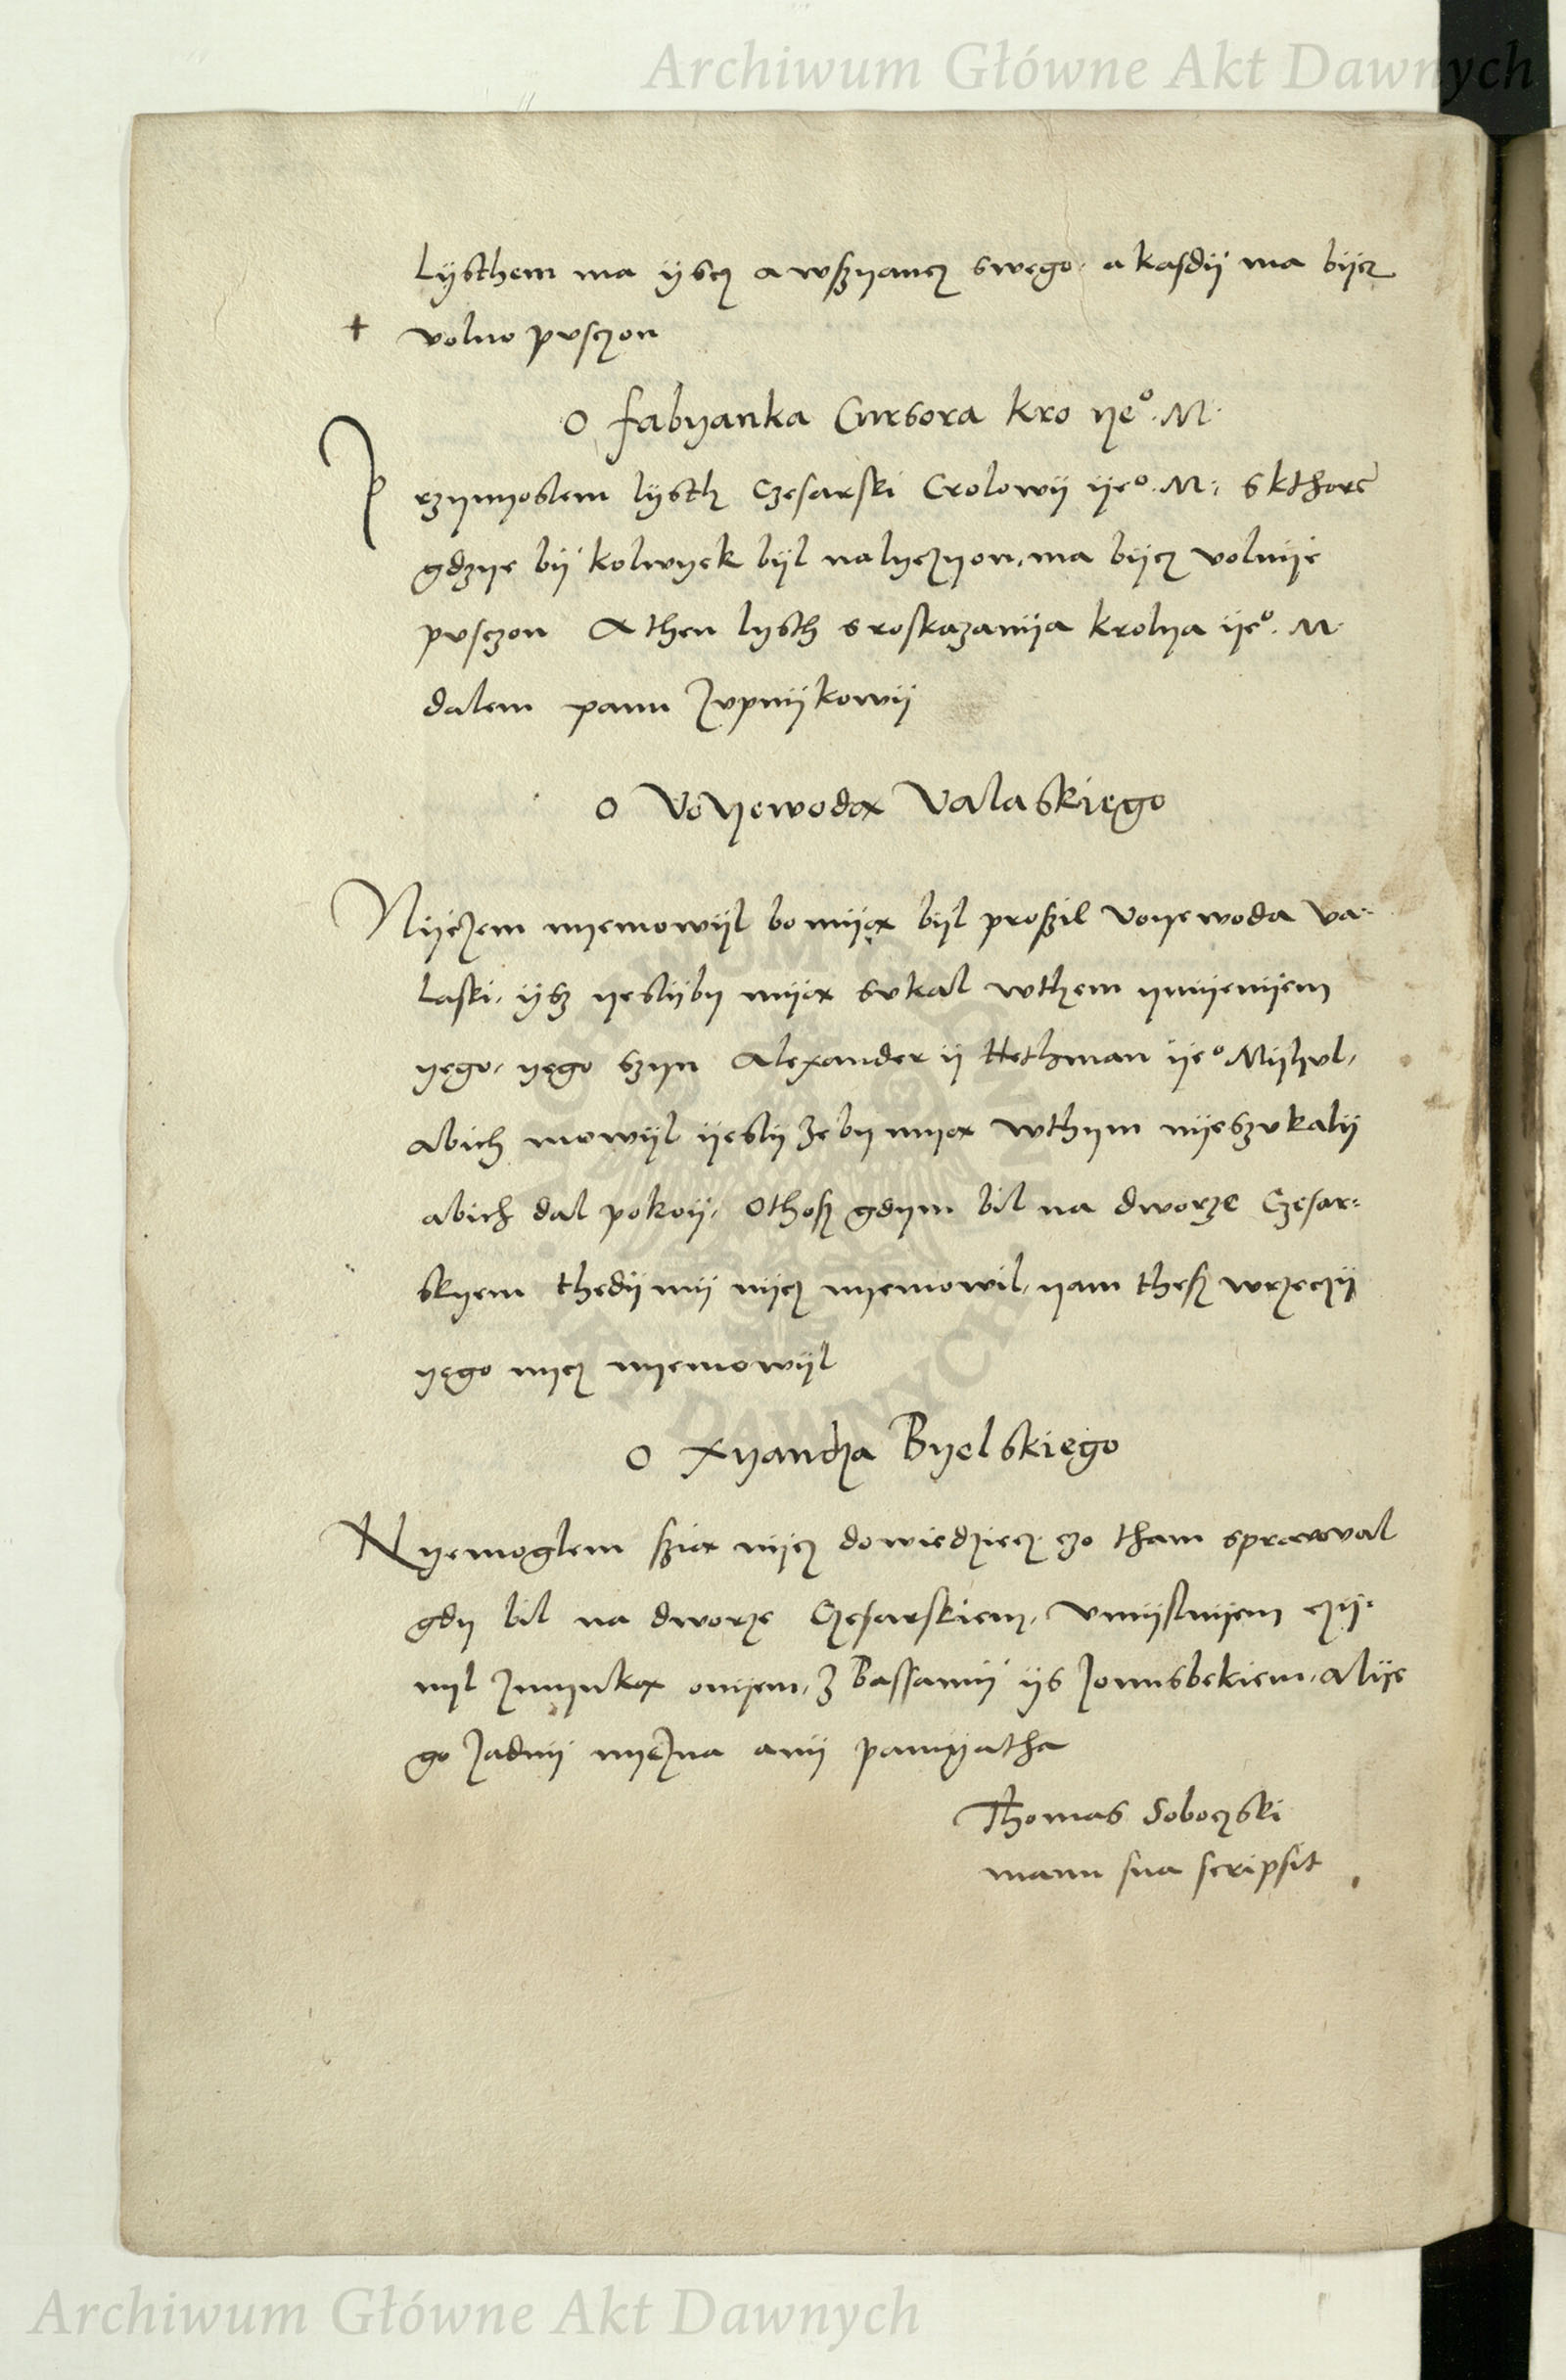 Archiwum Główne Akt Dawnych
Lysthem ma yscz a wszyancz swego. a kasdy ma bycz
+ volno pusczon
O fabyanka Cursora kro ye°. M.
Przynyoslem lysth Czesarski Crolowy ye°. M: skthore
gdzye by kolwyek byl nalyezyon, ma bycz volnye
pusczon A then lysth s roskazanya krolya ye°. M.
dalem panu zupnykowy
O Voyewodax Valaskiego
Nyczem nyemowyl bo myax byl prosil Voyewoda Va-
laski, ysz yeslyby myax sukal wthem ymyenyem
yego, yego szyn Alexander y Hethman ye° Myhul,
abich mowyl yesly zeby myax wthym nyeszukaly
abich dal pokoy, Othosz gdym bil na dworze Czesar-
skyem thedy my nycz nyemowil, yam thesz wrzeczy
yego nycz nyemowyl
O Xyandza Byelskiego
Nyemoglem sziax nycz dowiedziecz czo tham sprawoval
gdy bil na dworze Czesarskiem, umyslnyem czy-
nyl zmynkax onyem, z Bassamy ys Jonusbekiem, Alye
go zadny nyezna any pamyatha
Thomas Soboczski
manu sua scripsit
ARCHIWUM GŁÓWNE AKT DAWNYCH
Archiwum Główne Akt Dawnych